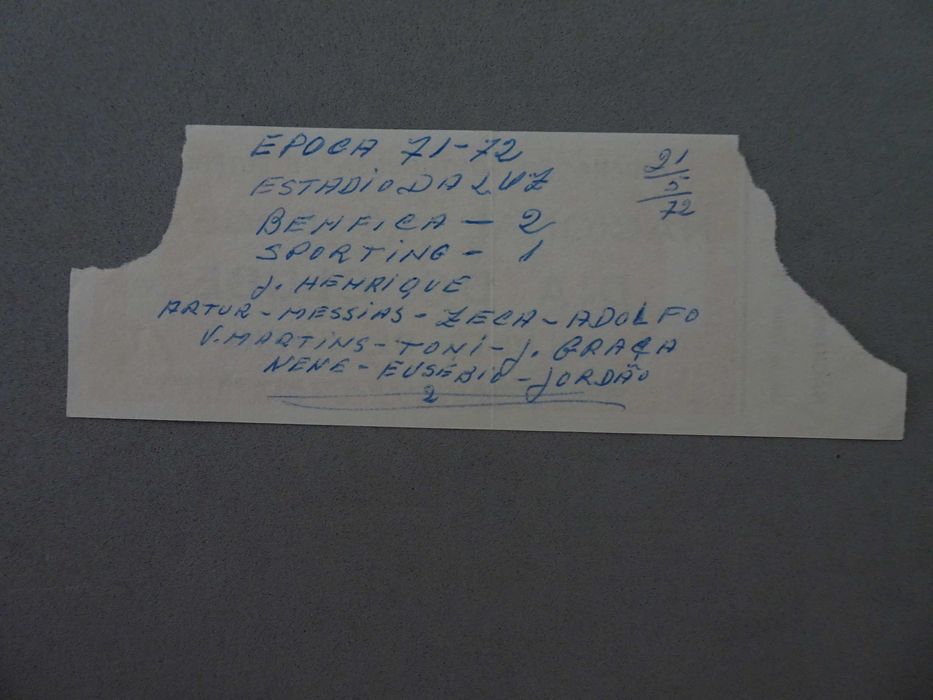 EPOCA 71-72
21/5/72
ESTADIO DA LUZ
BENFICA - 2
SPORTING - 1
J. HENRIQUE
ARTUR - MESSIAS - ZECA - ADOLFO
V. MARTINS - TONI - J. GRAÇA
NENE - EUSÉBIO - JORDÃO
2